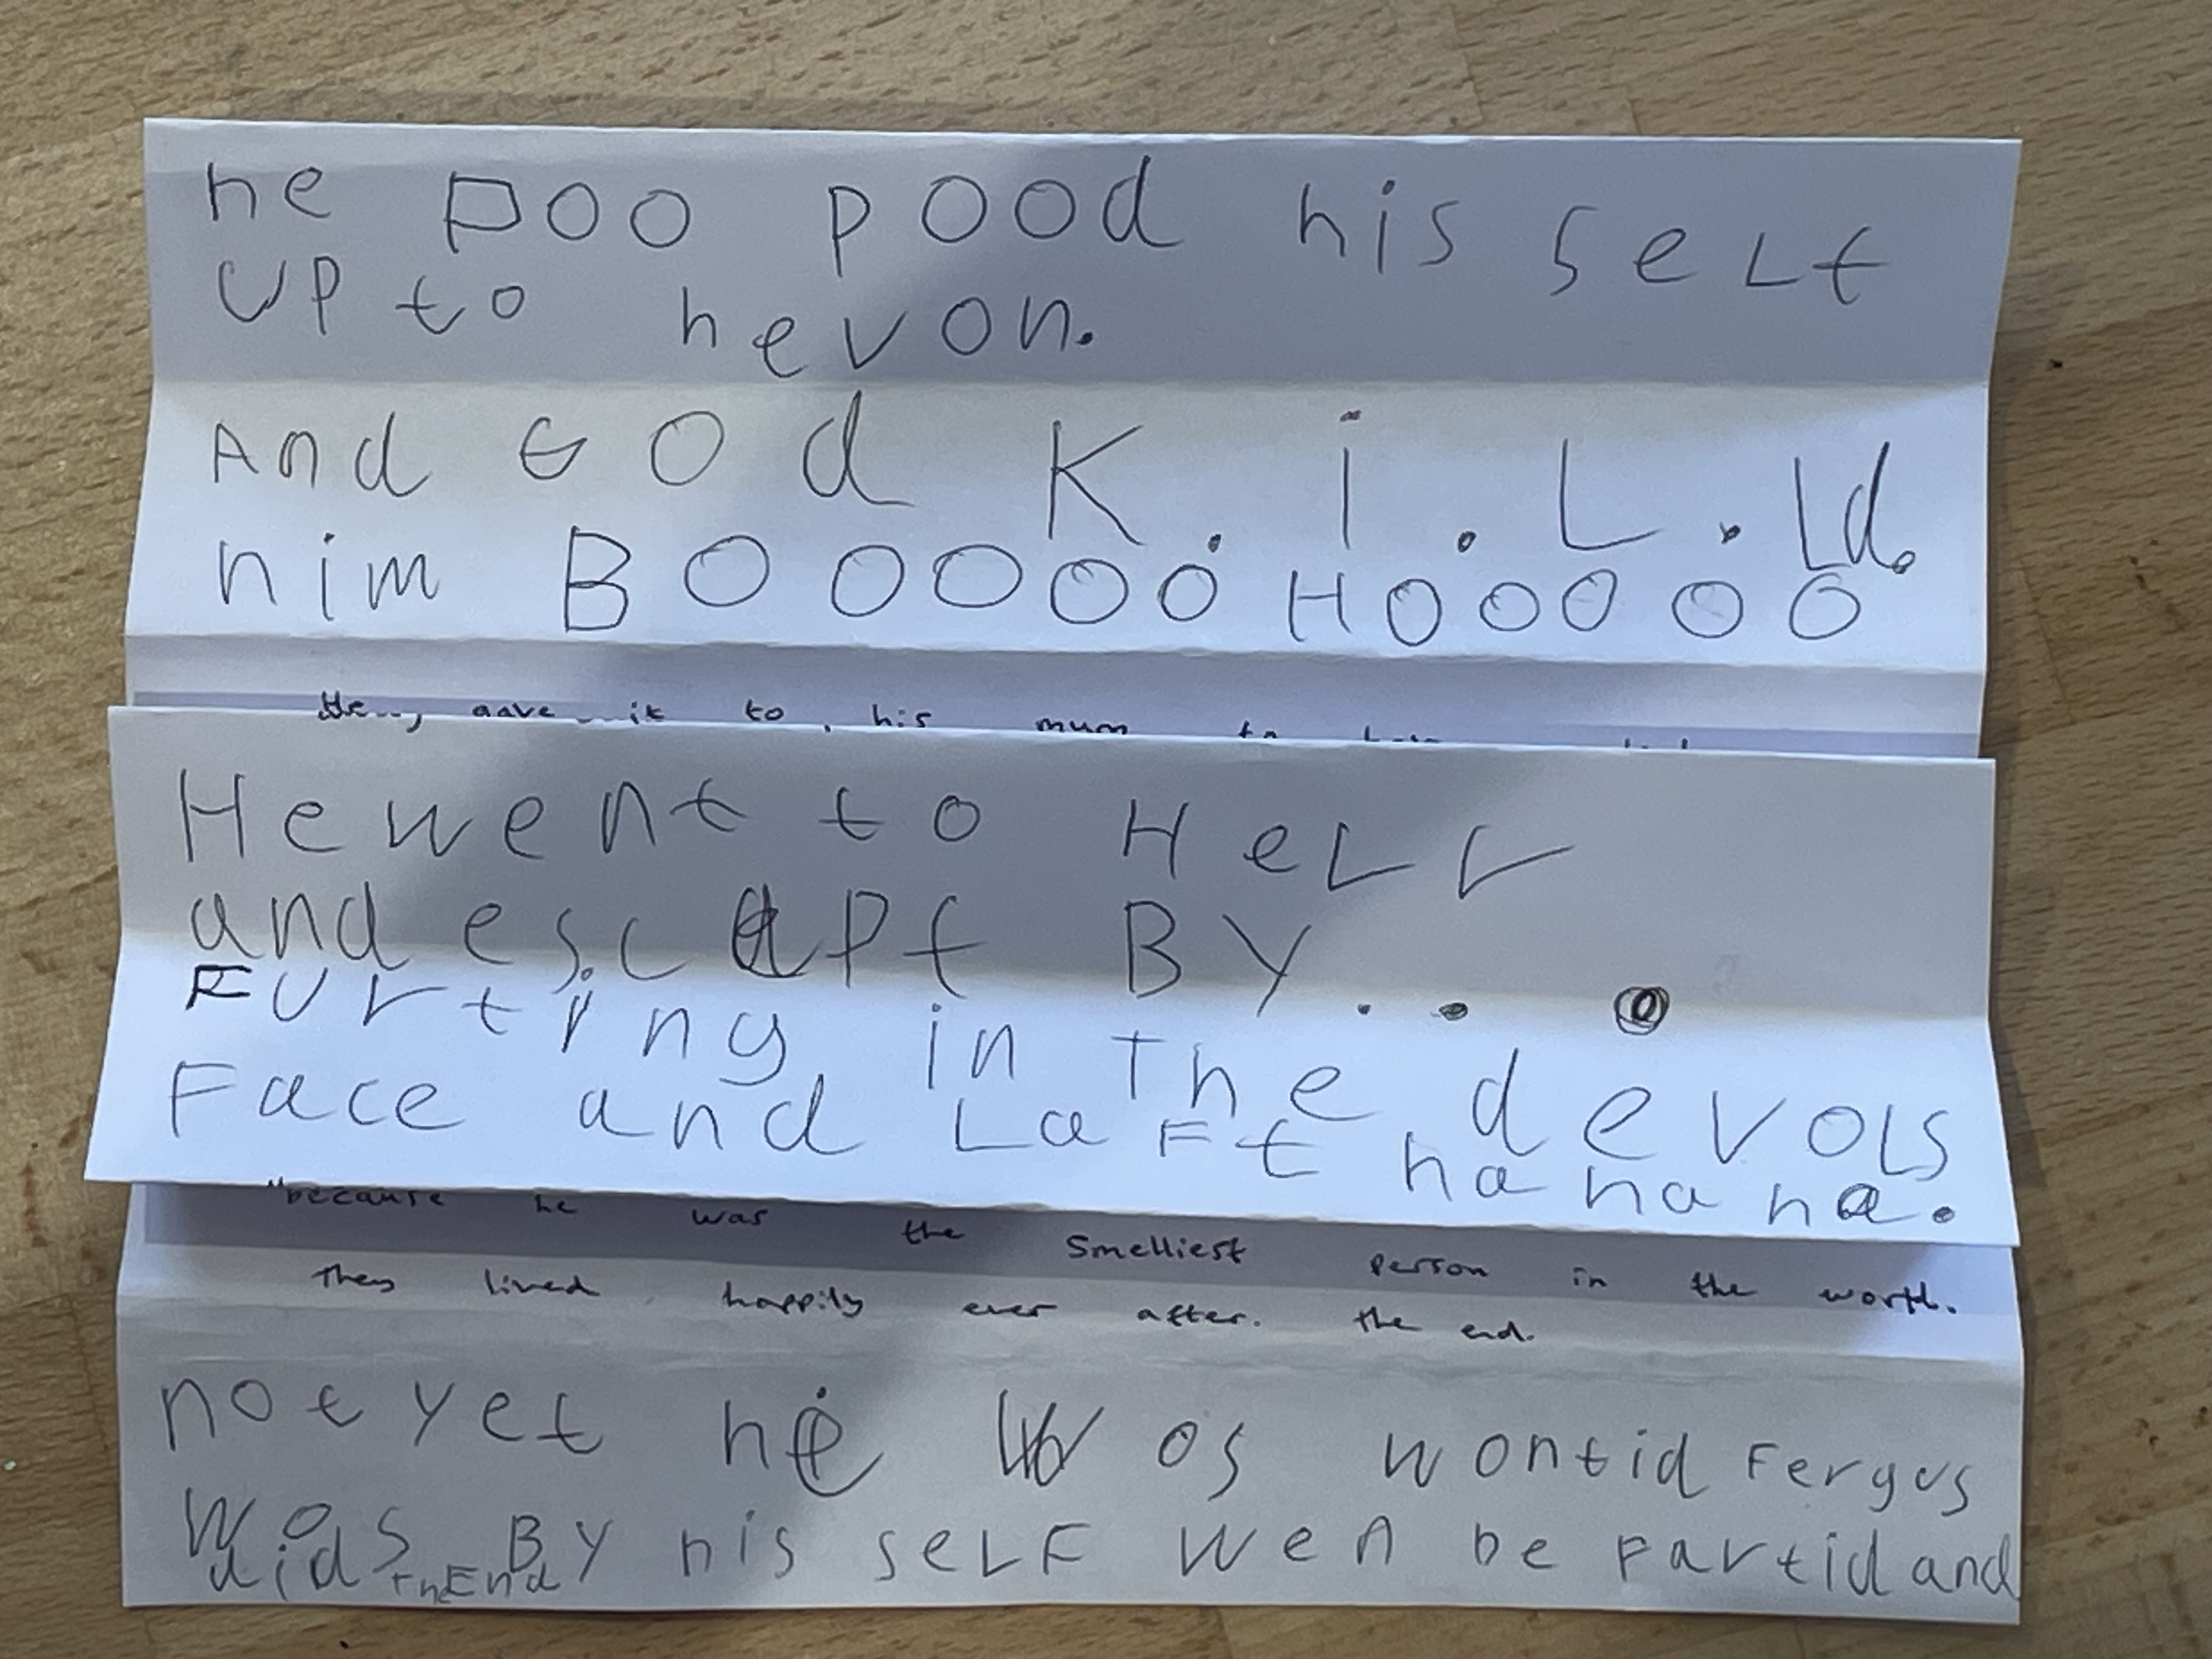 he poo pood his self
UP to hevon.
And God K.i.L.Ld.
him BOOOOO HOOOOO
gave it to his mum to
He went to HeLL
and escapt BY...
Furting in The devoLs
Face and LaFt ha ha ha.
because he was the Smelliest person in the world.
They lived happily ever after. the end.
not yet he Wos wontid Fergus
Wos BY his seLF wen he Fartid and
did the End